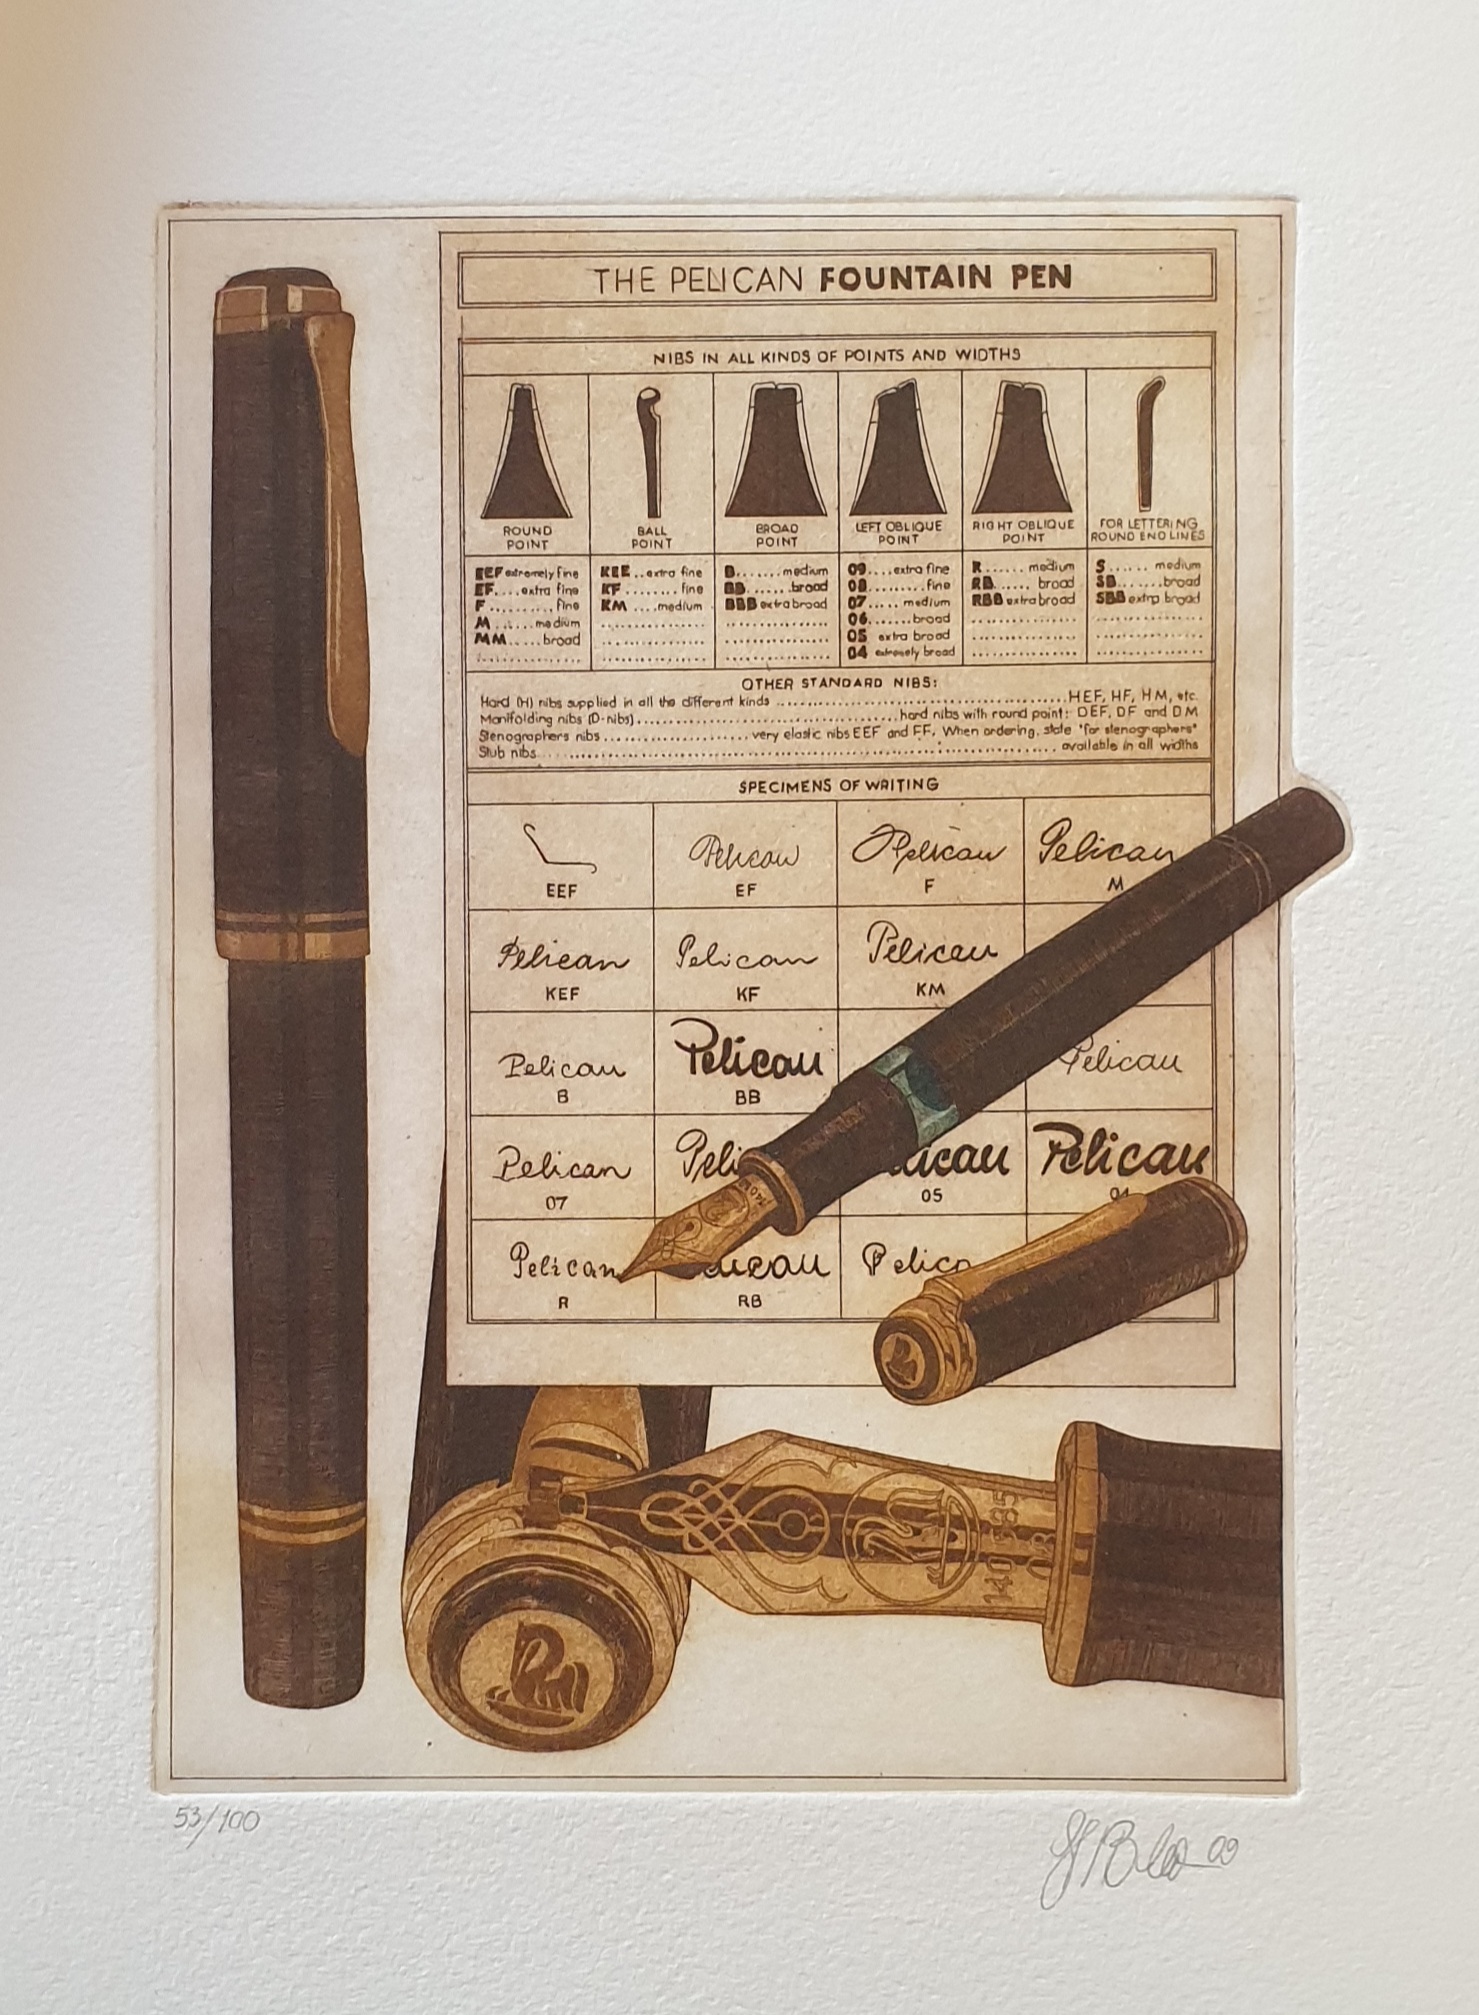 THE PELICAN FOUNTAIN PEN
NIBS IN ALL KINDS OF POINTS AND WIDTHS
ROUND POINT
BALL POINT
BROAD POINT
LEFT OBLIQUE POINT
RIGHT OBLIQUE POINT
FOR LETTERING ROUND END LINES
EEF extremely fine
EF.... extra fine
F .......... fine
M ...... medium
MM ..... broad
KEE .. extra fine
KF ........ fine
KM .... medium
B ....... medium
BB ....... broad
BBB extra broad
09.... extra fine
08........ fine
07..... medium
06....... broad
05 extra broad
04 extremely broad
R ...... medium
RB ...... broad
RBB extra broad
S ...... medium
SB ....... broad
SBB extra broad
OTHER STANDARD NIBS:
Hard (H) nibs supplied in all the different kinds ........ HEF, HF, HM, etc.
Manifolding nibs (D-nibs) ........ hard nibs with round point: DEF, DF and DM
Stenographers nibs ........ very elastic nibs EEF and FF. When ordering, state "for stenographers"
Stub nibs ........ available in all widths
SPECIMENS OF WRITING
EEF
Pelican
EF
Pelican
F
Pelican
M
Pelican
KEF
Pelican
KF
Pelican
KM
Pelican
B
Pelican
BB
Pelican
Pelican
07
Peli
lican
05
Pelican
04
Pelican
R
RB
Pelica
14C-585
53/100
09